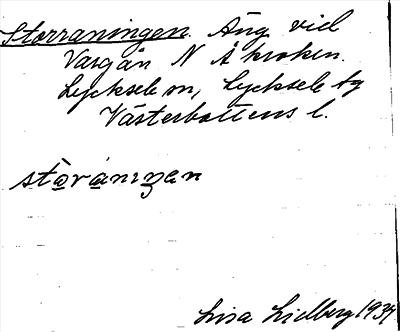 Storraningen. Äng vid
Vargån N Åkroken.
Lycksele sn, Lycksele tg
Västerbottens l.
stòrànıŋen
Lisa Lidberg 1934